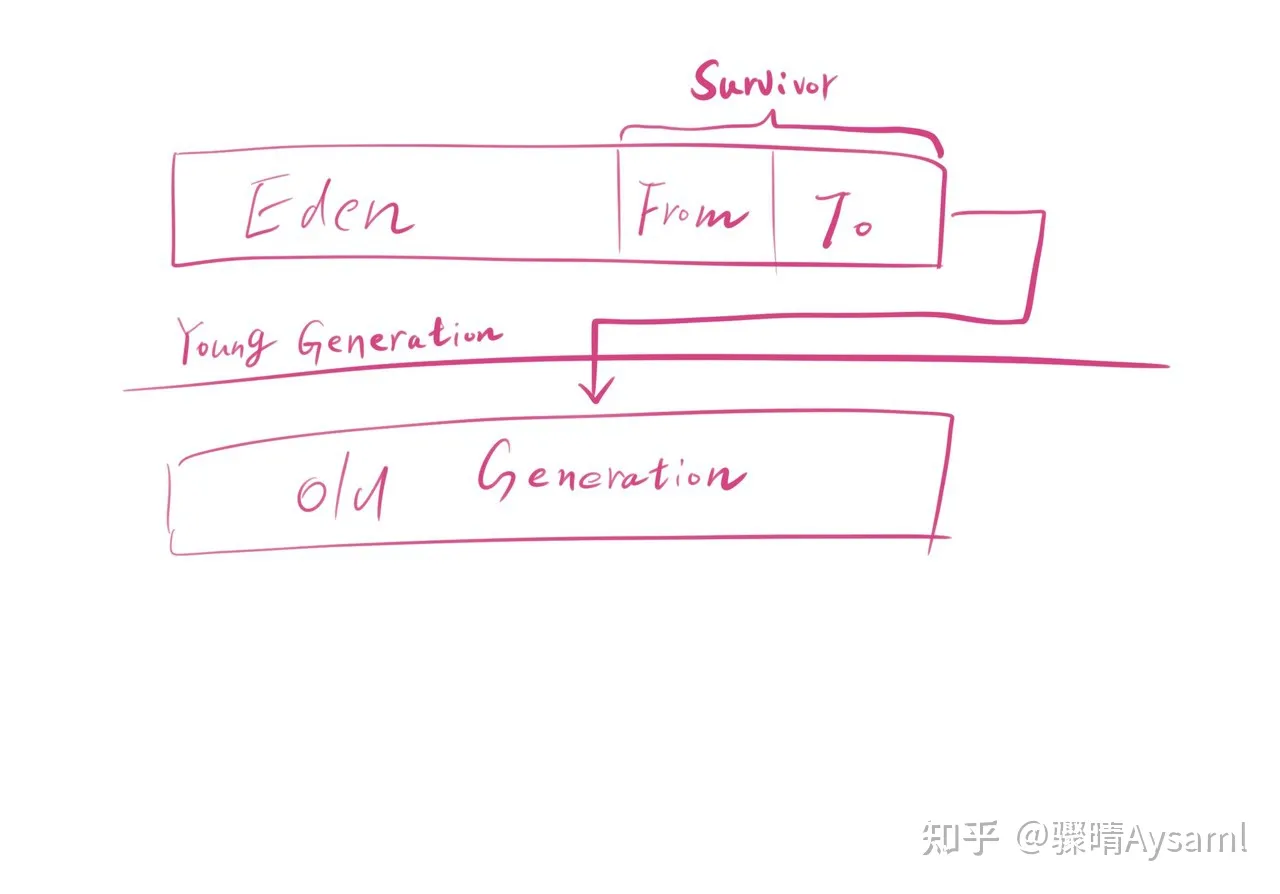 Survivor
Eden From To
Young Generation
old Generation
知乎 @骤晴Aysaml